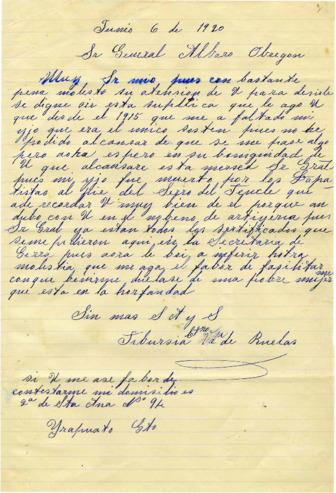 Junio 6 de 1920
Sr General Alvaro Obregon
Muy Sr mio, pues con bastante
pena molesto su atension de U para desirle
se digne oir esta suplica que le ago U
que desde el 1915 que me a faltado mi
yjo que era el unico sosten pues no he
podido alcansar de que se me pase algo
pero aora, espero en su benignidad de
U que alcansare esta mersed Sr Gral
pues mi yjo fue muerto por los Sapa
tistas al pie del Serro del Jeucle que
ade recordar U muy bien de el porque an
dubo con U en el numero de artiyeria pues
Sr Gral ya estan todos los sertificados que
seme pidieron aqui, en la Secretaria de
Gerra pues aora le boi, a referir hotra
molestia, que me aga, el favor de fasilitarme
conque duelase de una pobre mujer
que esta en la horfandad
Sin mas S A y S
Tibursia Vda de Ruelas
si U me ase fabor de
contestarme mi domisilio es
2a de Sta Ana No 94
Yrapuato Gto